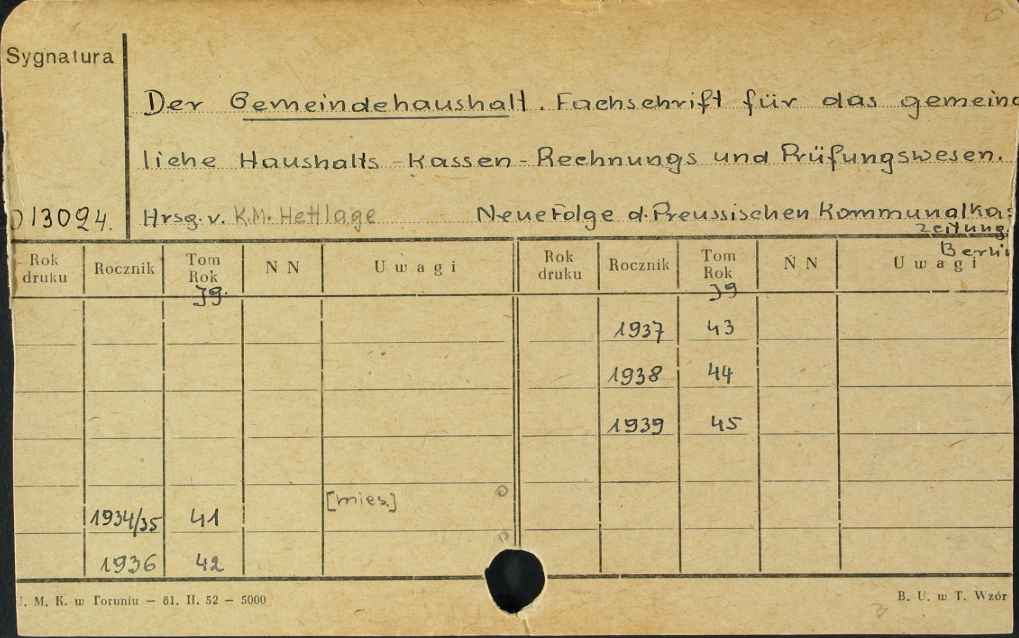 Sygnatura
Der Gemeindehaushalt. Fachschrift für das gemeind
liche Haushalts-Kassen-Rechnungs und Prüfungswesen.
013094. Hrsg. v. K.M. Hettlage Neue Folge d. Preussischen Kommunalka:
zeitung.
Berlin
Rok druku Rocznik Tom Rok N N Uwagi Rok druku Rocznik Tom Rok N N Uwagi
Jg. Jg
1937 43
1938 44
1939 45
[mies.]
1934/35 41
1936 42
U. M. K. w Toruniu — 61. II. 52 — 5000 B. U. w T. Wzór